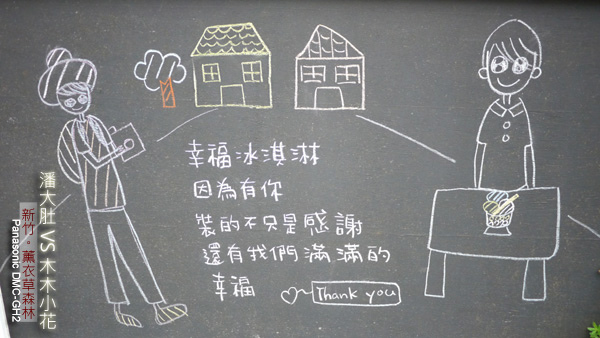 幸福冰淇淋
因為有你
裝的不只是感謝
還有我們滿滿的
幸福
Thank you
潘大肚 VS 木木小花
新竹。薰衣草森林
Panasonic DMC-GH2